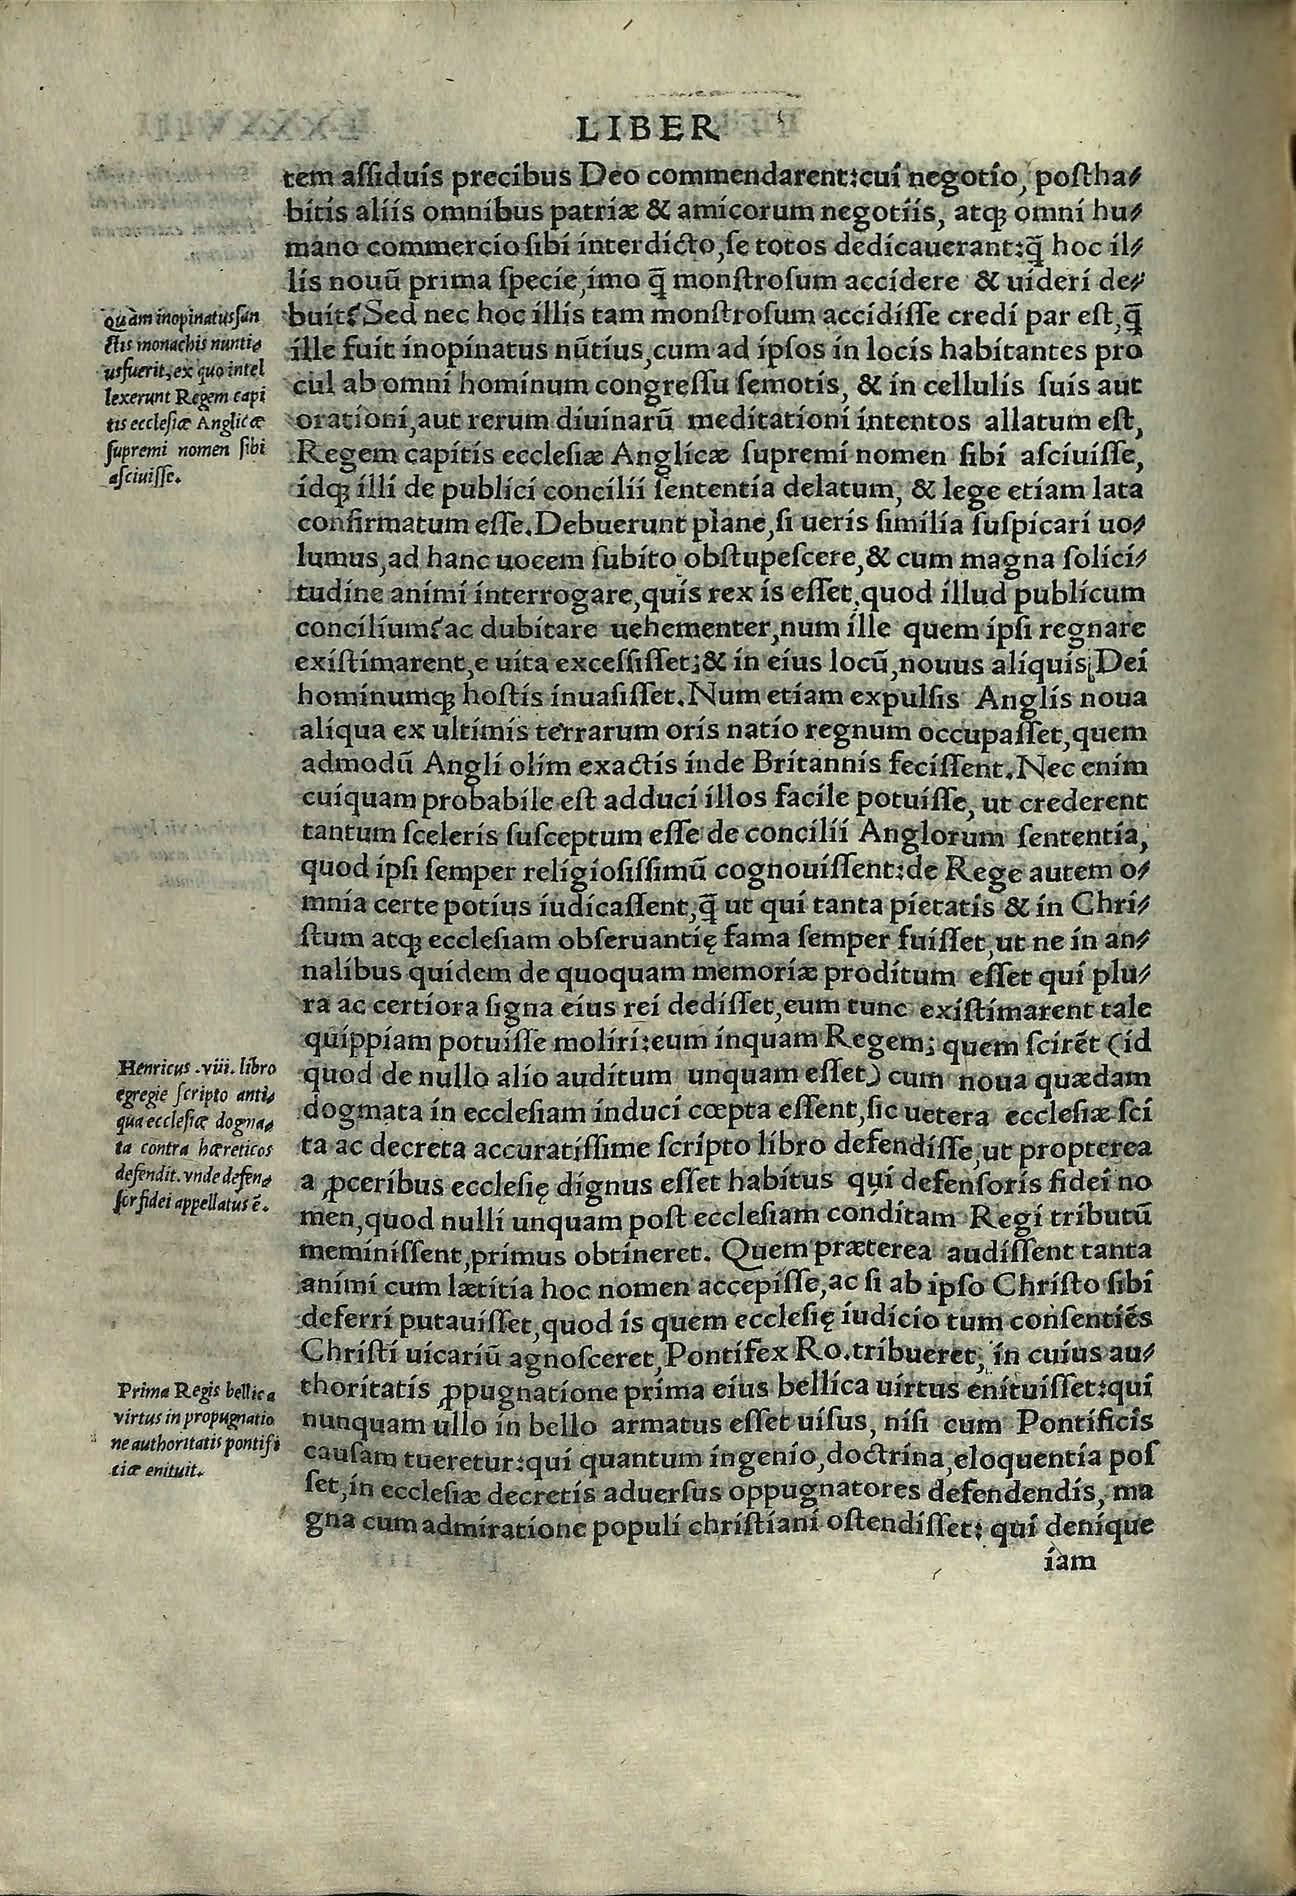 LIBER
tem assiduis precibus Deo commendarent: cui negotio, posthа⸗
bitis aliis omnibus patriæ & amicorum negotiis, atqꝫ omni hu⸗
mano commercio sibi interdicto, se totos dedicauerant: q̃ hoc il⸗
lis nouũ prima specie, imo q̃ monstrosum accidere & uideri de⸗
buit? Sed nec hoc illis tam monstrosum accidisse credi par est, q̃
ille fuit inopinatus nũtius, cum ad ipsos in locis habitantes pro
cul ab omni hominum congressu semotis, & in cellulis suis aut
orationi, aut rerum diuinarũ meditationi intentos allatum est,
Regem capitis ecclesiæ Anglicæ supremi nomen sibi asciuisse,
idqꝫ illi de publici concilii sententia delatum, & lege etiam lata
confirmatum esse. Debuerunt plane, si ueris similia suspicari uo⸗
lumus, ad hanc uocem subito obstupescere, & cum magna solici⸗
tudine animi interrogare, quis rex is esset, quod illud publicum
concilium? ac dubitare uehementer, num ille quem ipsi regnare
existimarent, e uita excessisset; & in eius locũ, nouus aliquis Dei
hominumqꝫ hostis inuasisset. Num etiam expulsis Anglis noua
aliqua ex ultimis terrarum oris natio regnum occupasset, quem
admodũ Angli olim exactis inde Britannis fecissent. Nec enim
cuiquam probabile est adduci illos facile potuisse, ut crederent
tantum sceleris susceptum esse de concilii Anglorum sententia,
quod ipsi semper religiosissimũ cognouissent: de Rege autem o⸗
mnia certe potius iudicassent, q̃ ut qui tanta pietatis & in Chri⸗
stum atqꝫ ecclesiam obseruantię fama semper fuisset, ut ne in an⸗
nalibus quidem de quoquam memoriæ proditum esset qui plu⸗
ra ac certiora signa eius rei dedisset, eum tunc existimarent tale
quippiam potuisse moliri: eum inquam Regem; quem scirẽt (id
quod de nullo alio auditum unquam esset) cum noua quædam
dogmata in ecclesiam induci cœpta essent, sic uetera ecclesiæ sci
ta ac decreta accuratissime scripto libro defendisse, ut propterea
a ꝓceribus ecclesię dignus esset habitus qui defensoris fidei no
men, quod nulli unquam post ecclesiam conditam Regi tributũ
meminissent, primus obtineret. Quem præterea audissent tanta
animi cum lætitia hoc nomen accepisse, ac si ab ipso Christo sibi
deferri putauisset, quod is quem ecclesię iudicio tum consentiẽs
Christi uicariũ agnosceret, Pontifex Ro. tribueret; in cuius au⸗
thoritatis ꝓpugnatione prima eius bellica uirtus enituisset: qui
nunquam ullo in bello armatus esset uisus, nisi cum Pontificis
causam tueretur: qui quantum ingenio, doctrina, eloquentia pos
set, in ecclesiæ decretis aduersus oppugnatores defendendis, ma
gna cum admiratione populi christiani ostendisset: qui denique
iam
Quàm inopinatus san
ctis monachis nunti⸗
us fuerit, ex quo intel
lexerunt Regem capi
tis ecclesiæ Anglicæ
supremi nomen sibi
asciuisse.
Henricus .viii. libro
egregie scripto anti⸗
qua ecclesiæ dogma⸗
ta contra hæreticos
defendit. vnde defen⸗
sor fidei appellatus ẽ.
Prima Regis bellica
virtus in propugnatio
ne authoritatis pontifi
ciæ enituit.